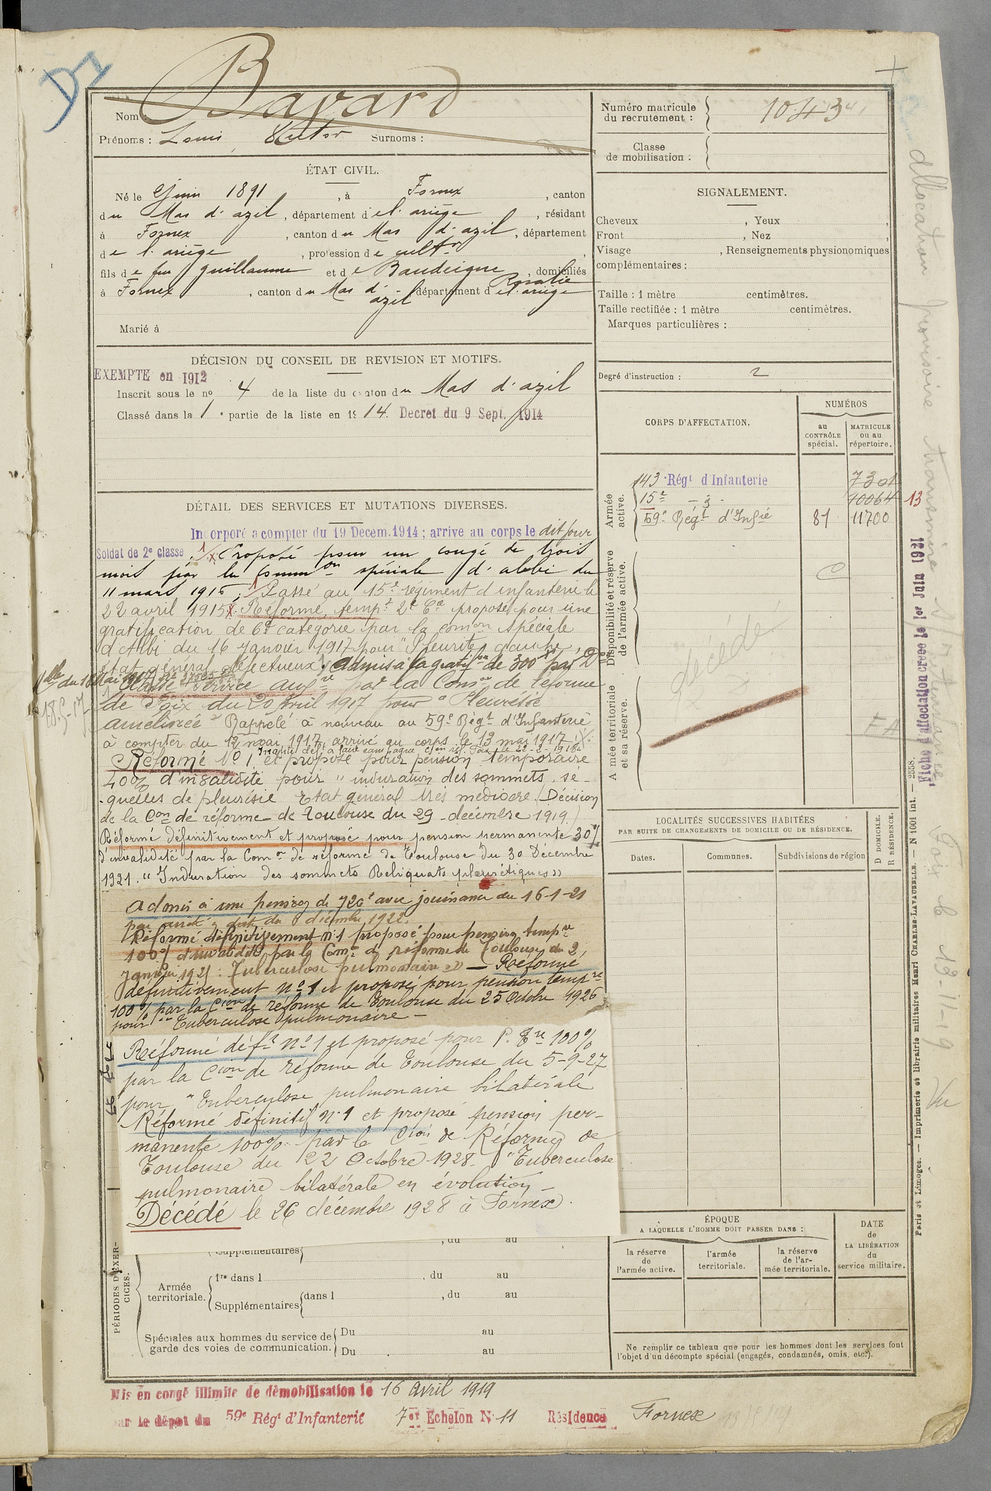 D1
Nom Bavard
Prénoms : Louis Victor Surnoms :
Numéro matricule du recrutement : 1043
Classe de mobilisation :
ÉTAT CIVIL.
Né le juin 1891, à Fornex, canton
du Mas d'azil, département de l'ariège, résidant
à Fornex, canton du Mas d'azil, département
de l'ariège, profession de cultr
fils de feu guillaume et de Baudeigne Rosalie, domiciliés
à Fornex, canton du Mas d'azil département de l'ariège
Marié à
SIGNALEMENT.
Cheveux , Yeux ,
Front , Nez ,
Visage , Renseignements physionomiques
complémentaires :
Taille : 1 mètre centimètres.
Taille rectifiée : 1 mètre centimètres.
Marques particulières :
Degré d'instruction : 2
DÉCISION DU CONSEIL DE REVISION ET MOTIFS.
EXEMPTE en 1912
Inscrit sous le no 4 de la liste du canton du Mas d'azil
Classé dans la 1e partie de la liste en 1914. Decret du 9 Sept. 1914
CORPS D'AFFECTATION.
NUMÉROS
au CONTRÔLE spécial.
MATRICULE ou au répertoire.
Armée active.
143 Régt d'Infanterie 7301
15e - d - 10064 13
59e Régt d'Infie 81 11700
Disponibilité et réserve de l'armée active.
décédé
Armée territoriale et sa réserve.
DÉTAIL DES SERVICES ET MUTATIONS DIVERSES.
Incorporé à compter du 19 Décem. 1914 ; arrivé au corps le dit jour
Soldat de 2e classe. Proposé pour un congé de trois
mois par la Common spéciale d'albi du
11 mars 1915. Passé au 15e régiment d'infanterie le
22 avril 1915. Réformé tempt 2e Cie proposé pour une
gratification de 6e catégorie par la Comon Spéciale
d'Albi du 16 janvier 1917 pour "Pleurite gauche
état général défectueux" Admis à la gratifon de 300f par D
Classé service auxre par la Comon de réforme
de Foix du 20 avril 1917 pour "Pleurésie
améliorée" Rappelé à nouveau au 59e Régt d'Infanterie
à compter du 12 mai 1917, arrivé au corps le 13 mai 1917.
Réformé No 1, et proposé pour pension temporaire
40% d'invalidité pour "induration des sommets, sé-
quelles de pleurésie. Etat général très médiocre (Décision
de la Con de réforme de Toulouse du 29 décembre 1919.)
Réformé définitivement et proposé pour pension permanente 30%
d'invalidité par la Comon de réforme de Toulouse du 30 Décembre
1921. "Induration des sommets Reliquats pleurétiques"
Admis à une pension de 720f avec jouissance du 16-1-21
par arrêté en date du 8 décembre 1922.
Réformé définitivement no 1 proposé pour pension tempre
100% d'invalidité par la Comon de réforme de Toulouse du 2
janvier 192. Tuberculose pulmonaire — Réformé
définitivement no 1 et proposé pour pension tempre
100% par la Cion de réforme de Toulouse du 25 Octobre 1926
pour "Tuberculose pulmonaire —
Réformé déft no 1 et proposé pour P. Tre 100%
par la Cion de réforme de Toulouse du 5-9-27
pour "Tuberculose pulmonaire bilatérale
Réformé définitif no 1 et proposé pension per-
manente 100% par la Cion de Réforme de
Toulouse du 22 Octobre 1928. "Tuberculose
pulmonaire bilatérale en évolution —
Décédé le 26 décembre 1928 à Fornex.
LOCALITÉS SUCCESSIVES HABITÉES
PAR SUITE DE CHANGEMENTS DE DOMICILE OU DE RÉSIDENCE.
Dates. Communes. Subdivisions de région
D DOMICILE. R RÉSIDENCE.
ÉPOQUE
A LAQUELLE L'HOMME DOIT PASSER DANS :
la réserve de l'armée active.
l'armée territoriale.
la réserve de l'armée territoriale.
DATE de LA LIBÉRATION du service militaire.
PÉRIODES D'EXERCICES.
Supplémentaires , du au
Armée territoriale.
1re dans l , du au
Supplémentaires dans l , du au
Spéciales aux hommes du service de garde des voies de communication.
Du au
Du au
Ne remplir ce tableau que pour les hommes dont les services font
l'objet d'un décompte spécial (engagés, condamnés, omis, etc.).
Mis en congé illimité de démobilisation le 16 avril 1919
par le dépôt du 59e Régt d'Infanterie 7e Echelon No 11 Résidence Fornex
allocation provisoire
Fiche d'affectation créée le 1er Juin 1921
Paris et Limoges. — Imprimerie et librairie militaires Henri CHARLES-LAVAUZELLE. — N° 1001 int. — 2558.